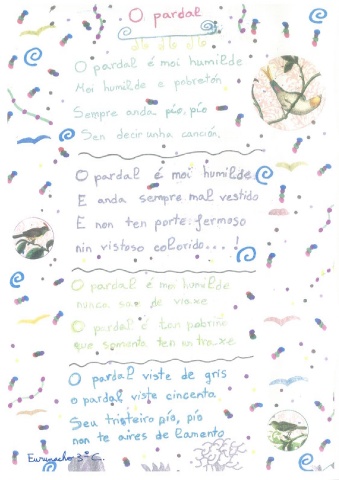 O pardal
O pardal é moi humilde
Moi humilde e pobretón
Sempre anda pío, pío
Sen decir unha canción.
O pardal é moi humilde
E anda sempre mal vestido
E non ten porte fermoso
nin vistoso colorido...!
O pardal é moi humilde
nunca sae de viaxe
O pardal é tan pobriño
que somente ten un traxe.
O pardal viste de gris
o pardal viste cincento
Seu tristeiro pío, pío
non te aires de lamento
3º C.